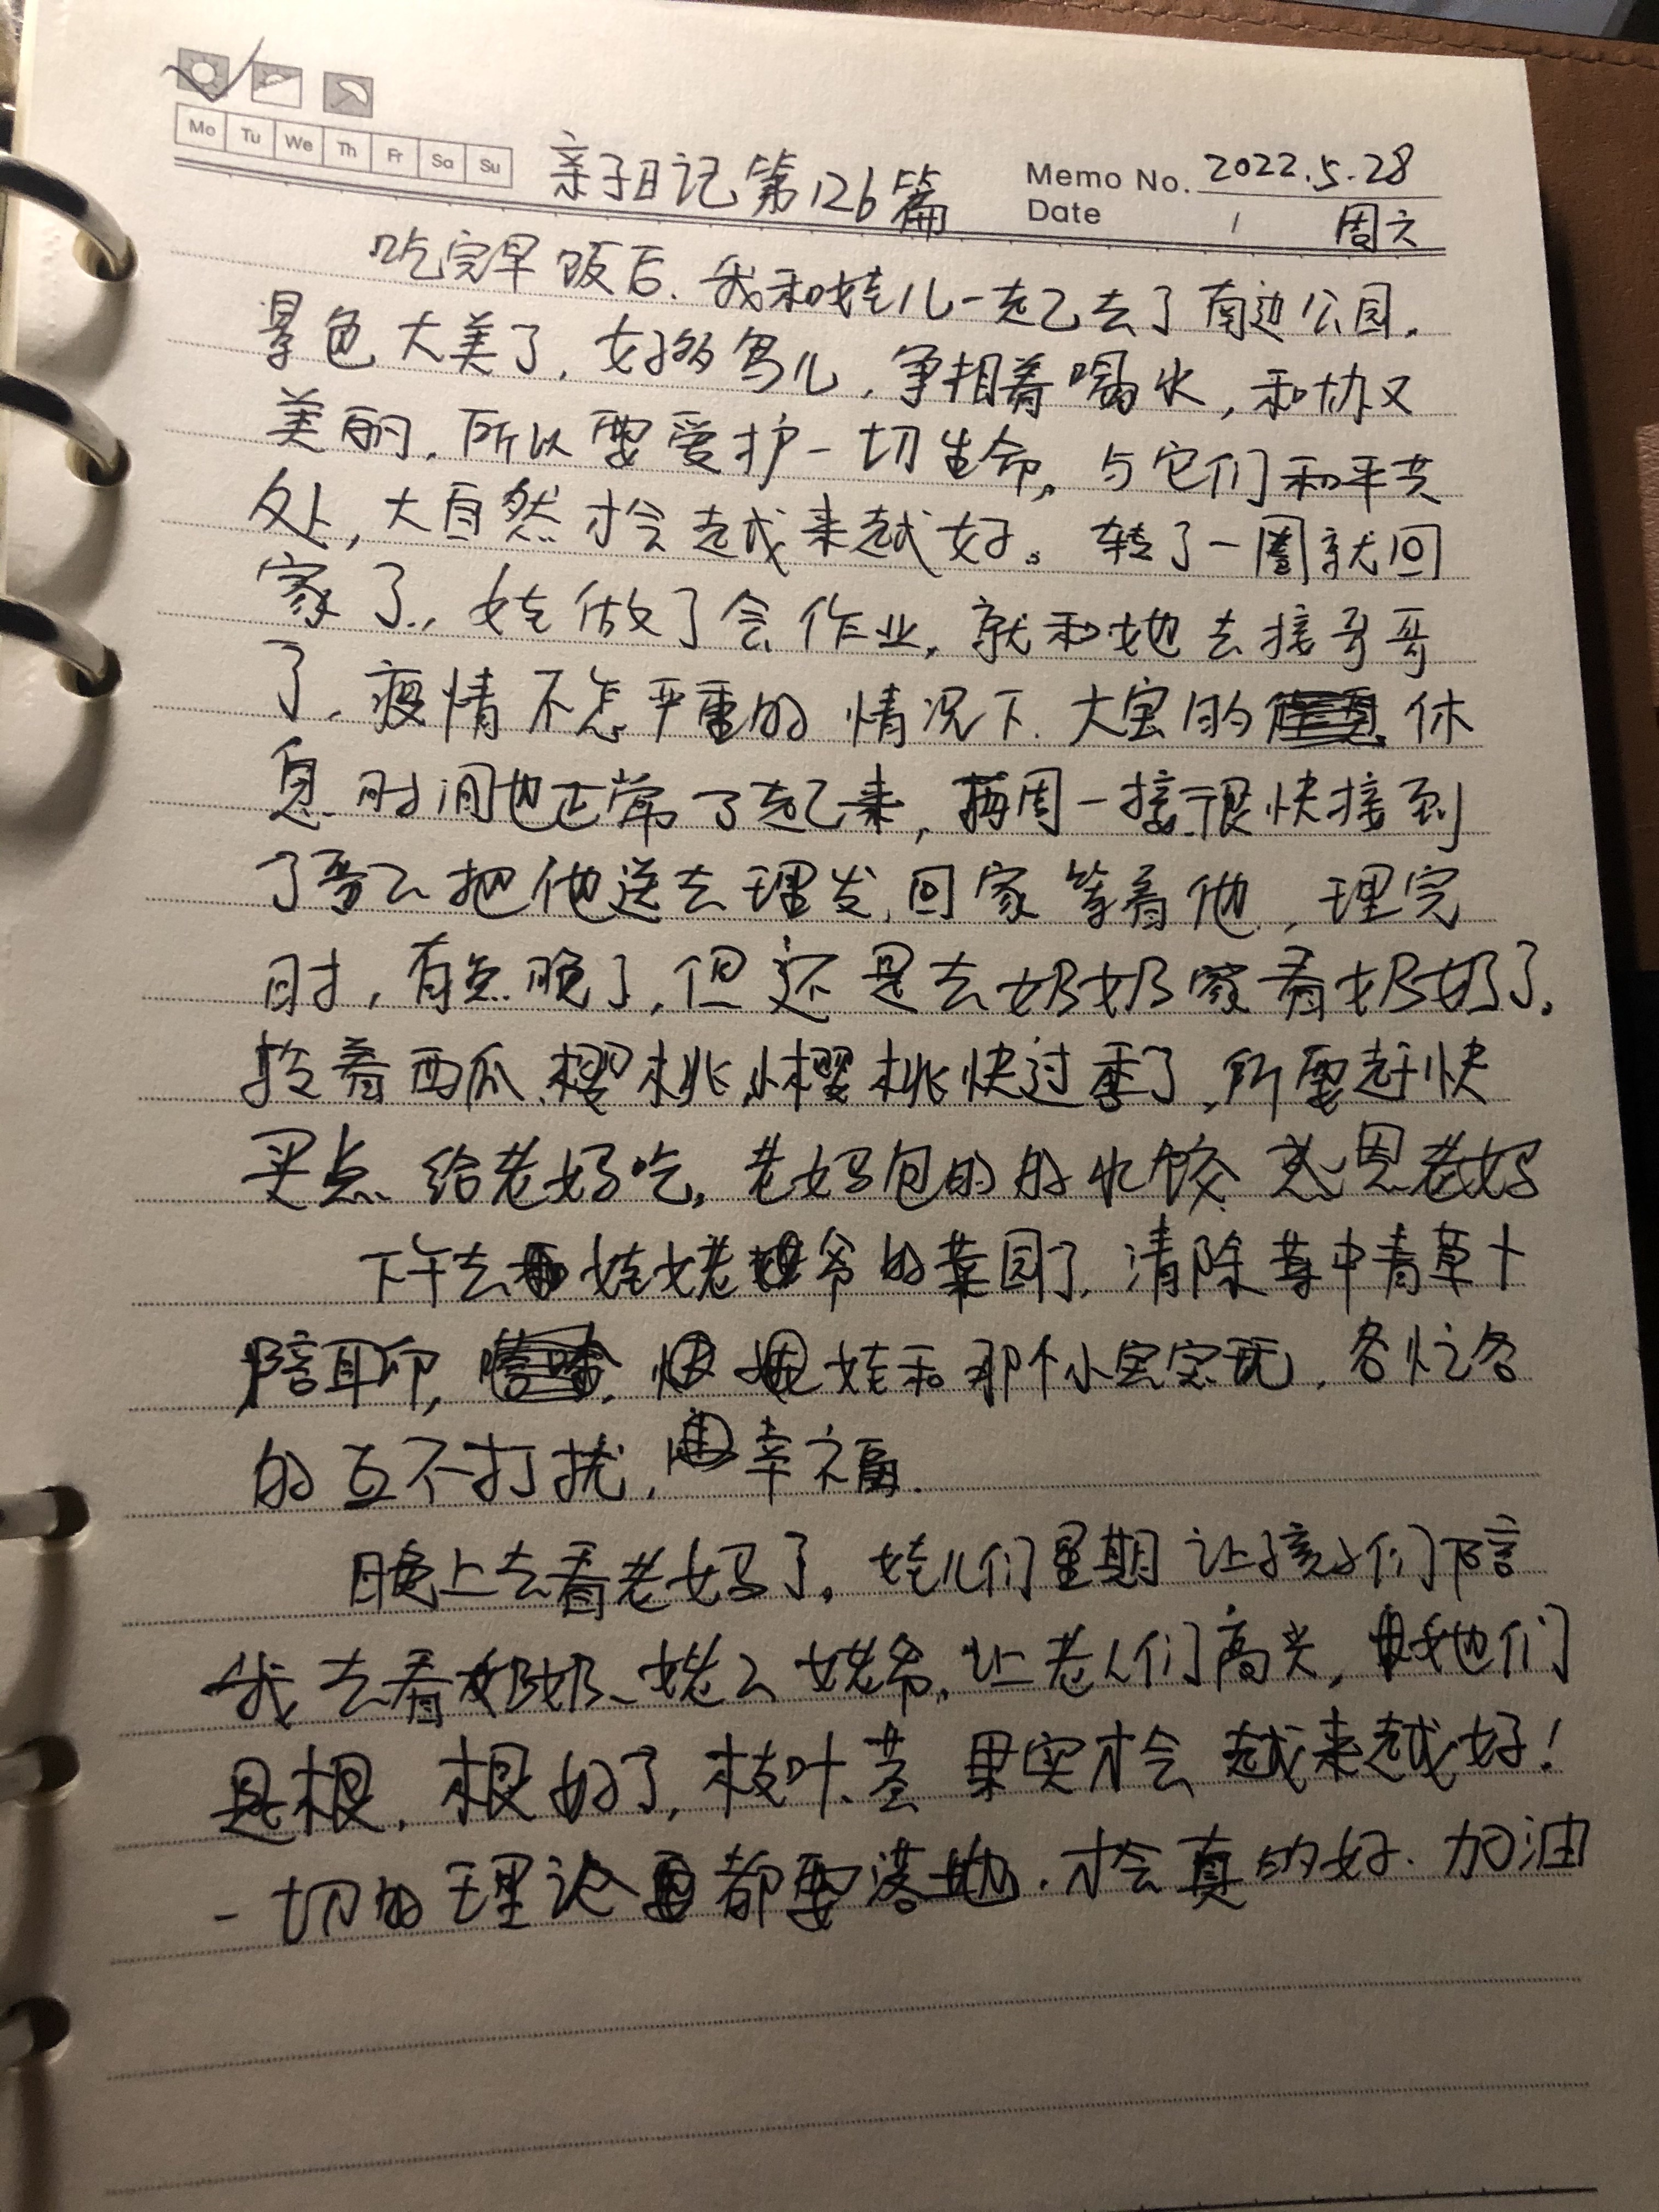 Mo Tu We Th Fr Sa Su
亲子日记第126篇
Memo No. 2022.5.28
Date 周六
吃完早饭后.我和娃儿一起去了南边公园.
景色大美了,好多鸟儿,争相着喝水,和协又
美丽.所以要爱护一切生命。与它们和平共
处,大自然才会越来越好。转了一圈就回
家了.,娃做了会作业.就和她去接哥哥
了.疫情不怎严重的情况下.大宝的休
息时间也正常了起来,每周一接.很快接到
了哥ㄥ把他送去理发,回家等着他,理完
时,有点晚了,但还是去奶奶家看奶奶了.
拉着西瓜、樱桃,樱桃快过季了,所要赶快
买点给老妈吃,老妈包的的水饺.感恩老妈
下午去娃姥爷的菜园了,清除草中青草
陪耳印, 娃和那个小宝宝玩,各忙各
的互不打扰,幸福.
晚上去看老妈了,娃儿们星期让孩子们陪
我去看奶奶、姥ㄥ姥爷,让老人们高兴,她们
是根,根好了,枝叶、茎果实才会越来越好!
一切的理论都要落地.才会真的好.加油